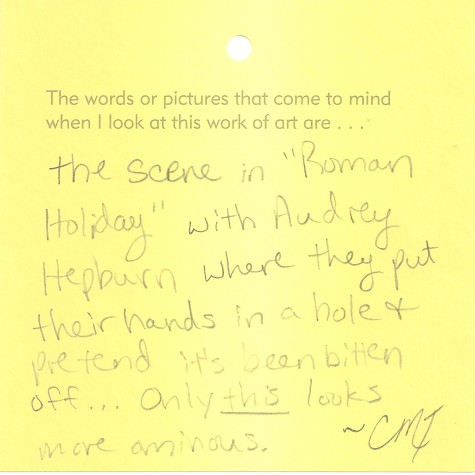 The words or pictures that come to mind
when I look at this work of art are . . .
the scene in "Roman
Holiday" with Audrey
Hepburn where they put
their hands in a hole &
pretend it's been bitten
off... Only this looks
more aminous.
~ CMJ